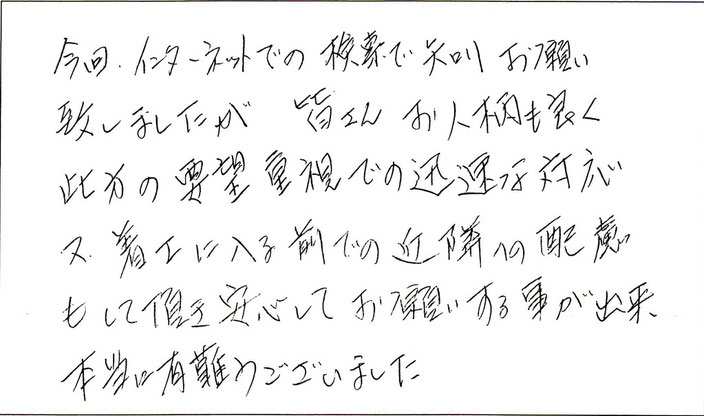 今回、インターネットでの検索で知りお願い
致しましたが 皆さん お人柄も良く
此方の要望重視での迅速な対応
又、着工に入る前での近隣への配慮
もして頂き安心してお願いする事が出来、
本当に有難うございました